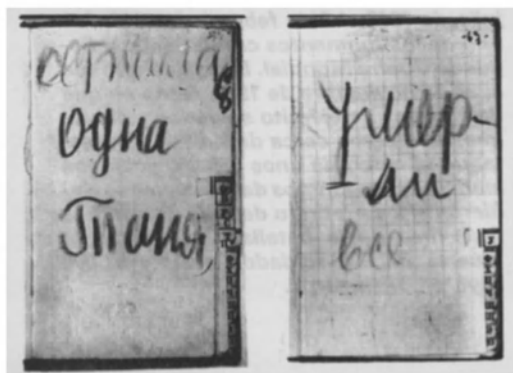 Осталась
одна
Таня
Умер-
ли
все